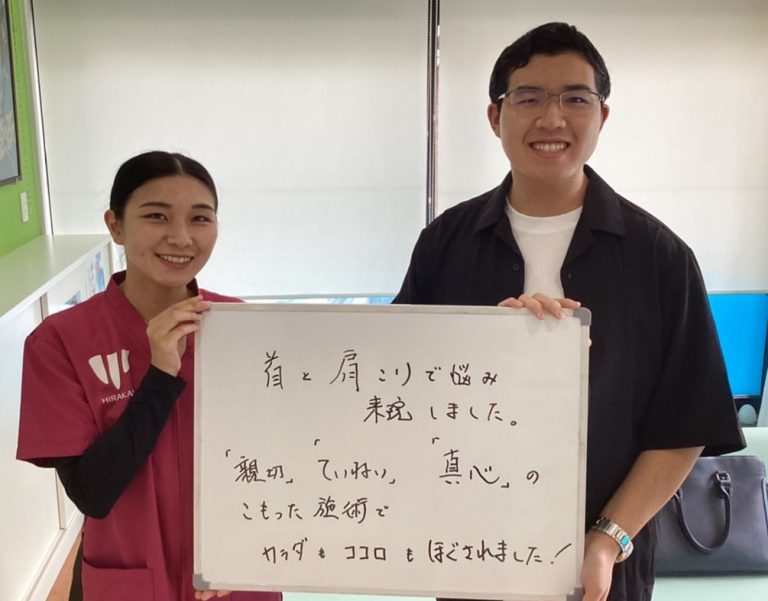 首と肩こりで悩み
来院しました。
「親切」「ていねい」「真心」の
こもった施術で
カラダもココロもほぐされました！
HIRAKA